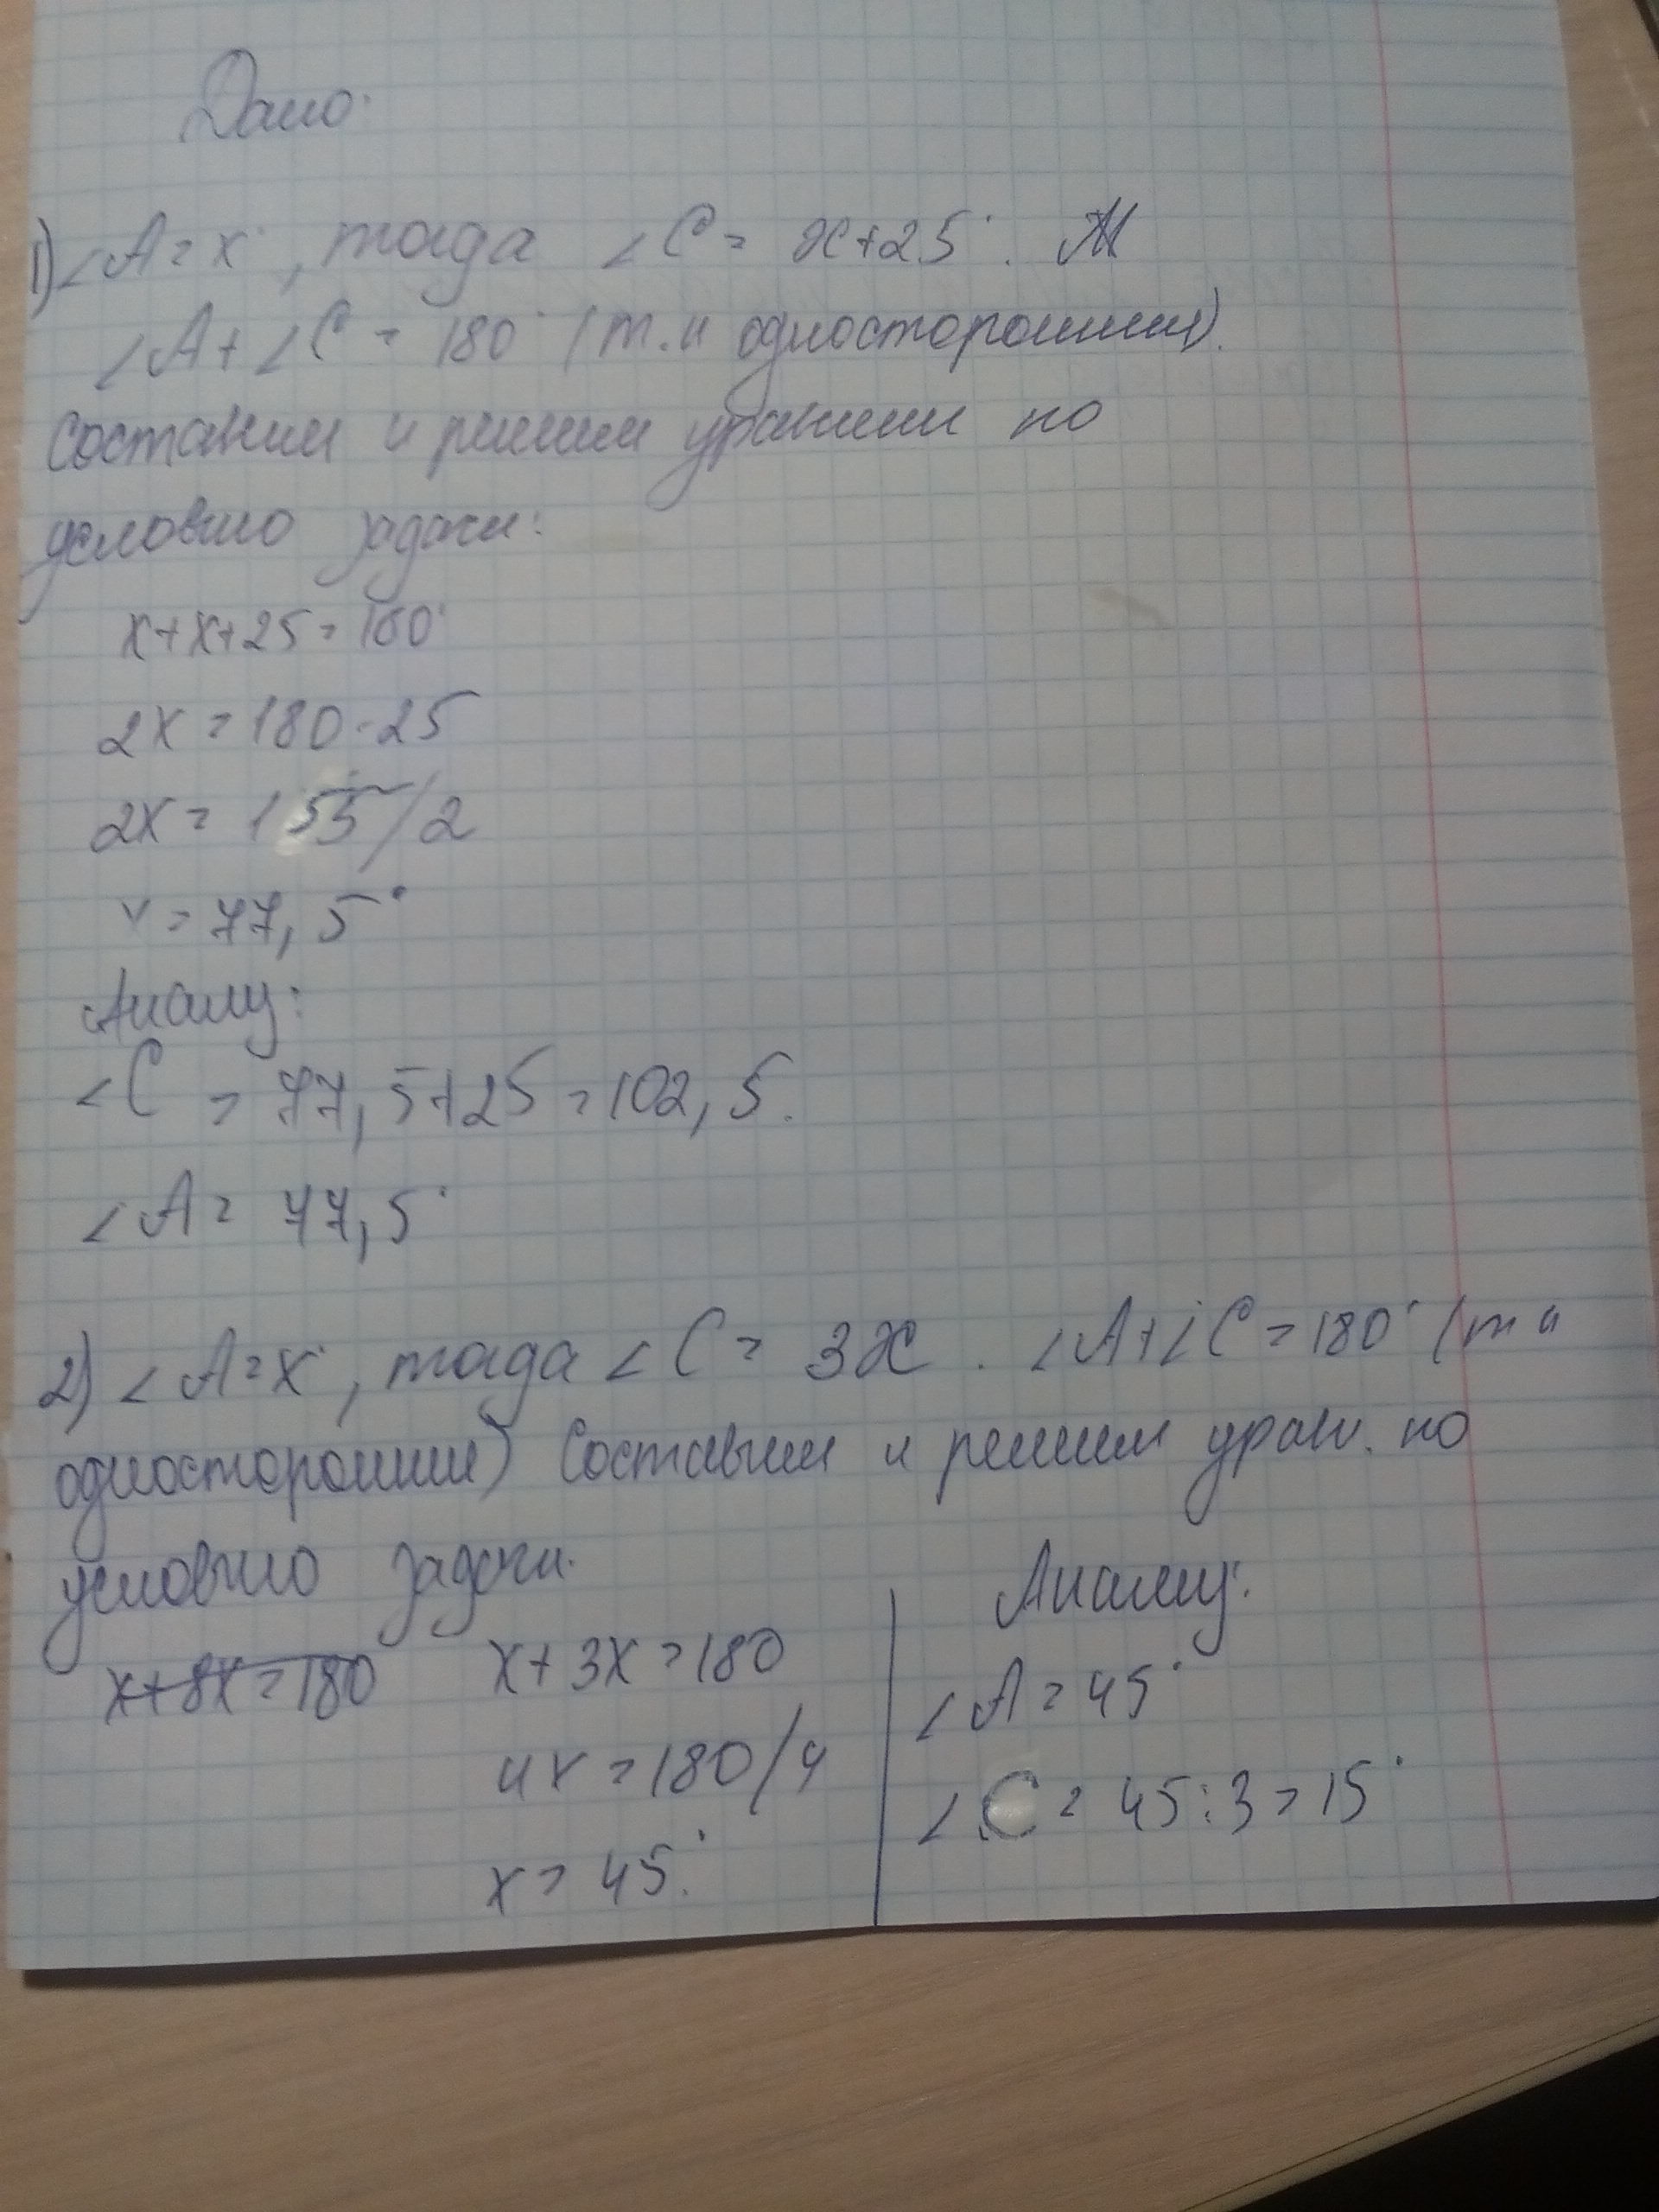 Дано:
1) ∠A = x°, тогда ∠C = x+25°. М
∠A + ∠C = 180° (т.к односторонние).
Составим и решим уравнени по
условию задачи:
x+x+25=180°
2x=180-25
2x = 155/2
x = 77,5°
Анализ:
∠C = 77,5+25=102,5.
∠A = 77,5°
2) ∠A=x°, тогда ∠C = 3x. ∠A+∠C=180° (т к
односторонние) Составим и решим уравн. по
условию задачи.
x+8x=180
x+3x=180
4x=180/4
x = 45°.
Анализ:
∠A=45°
∠C = 45:3=15°